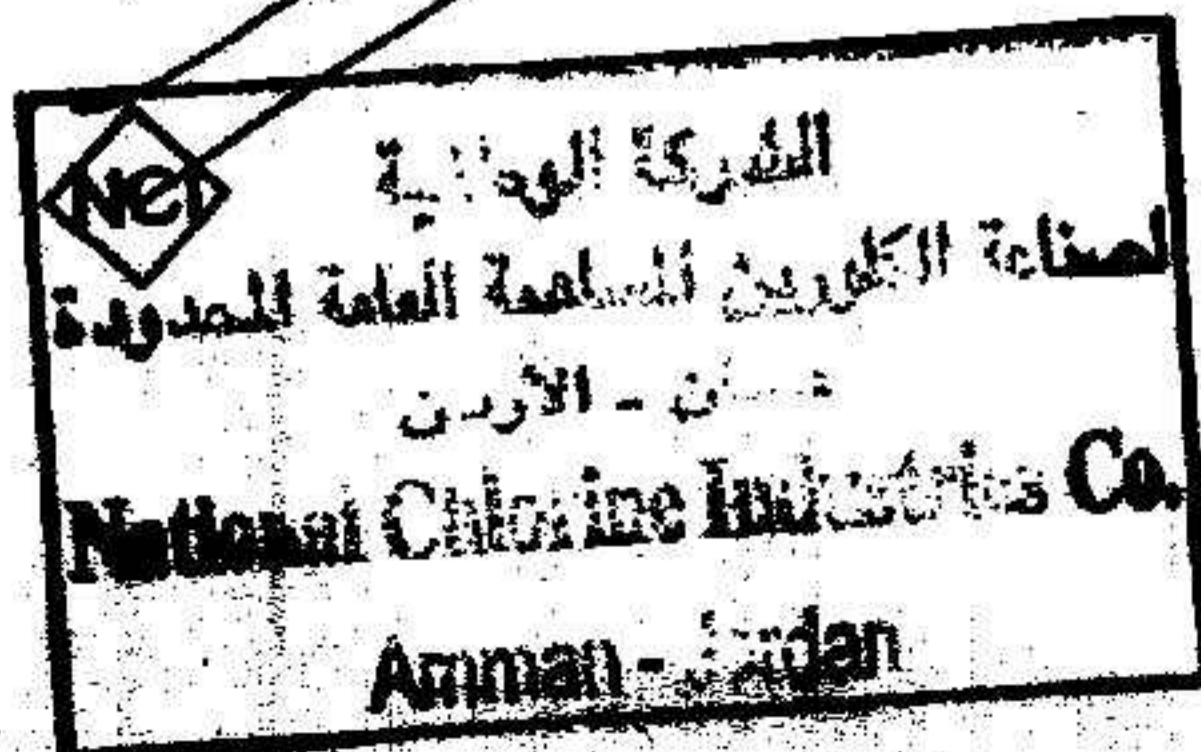 NCI
الشركة الوطنية
لصناعة الكلورين المساهمة العامة المحدودة
عمان - الأردن
National Chlorine Industries Co.
Amman - Jordan